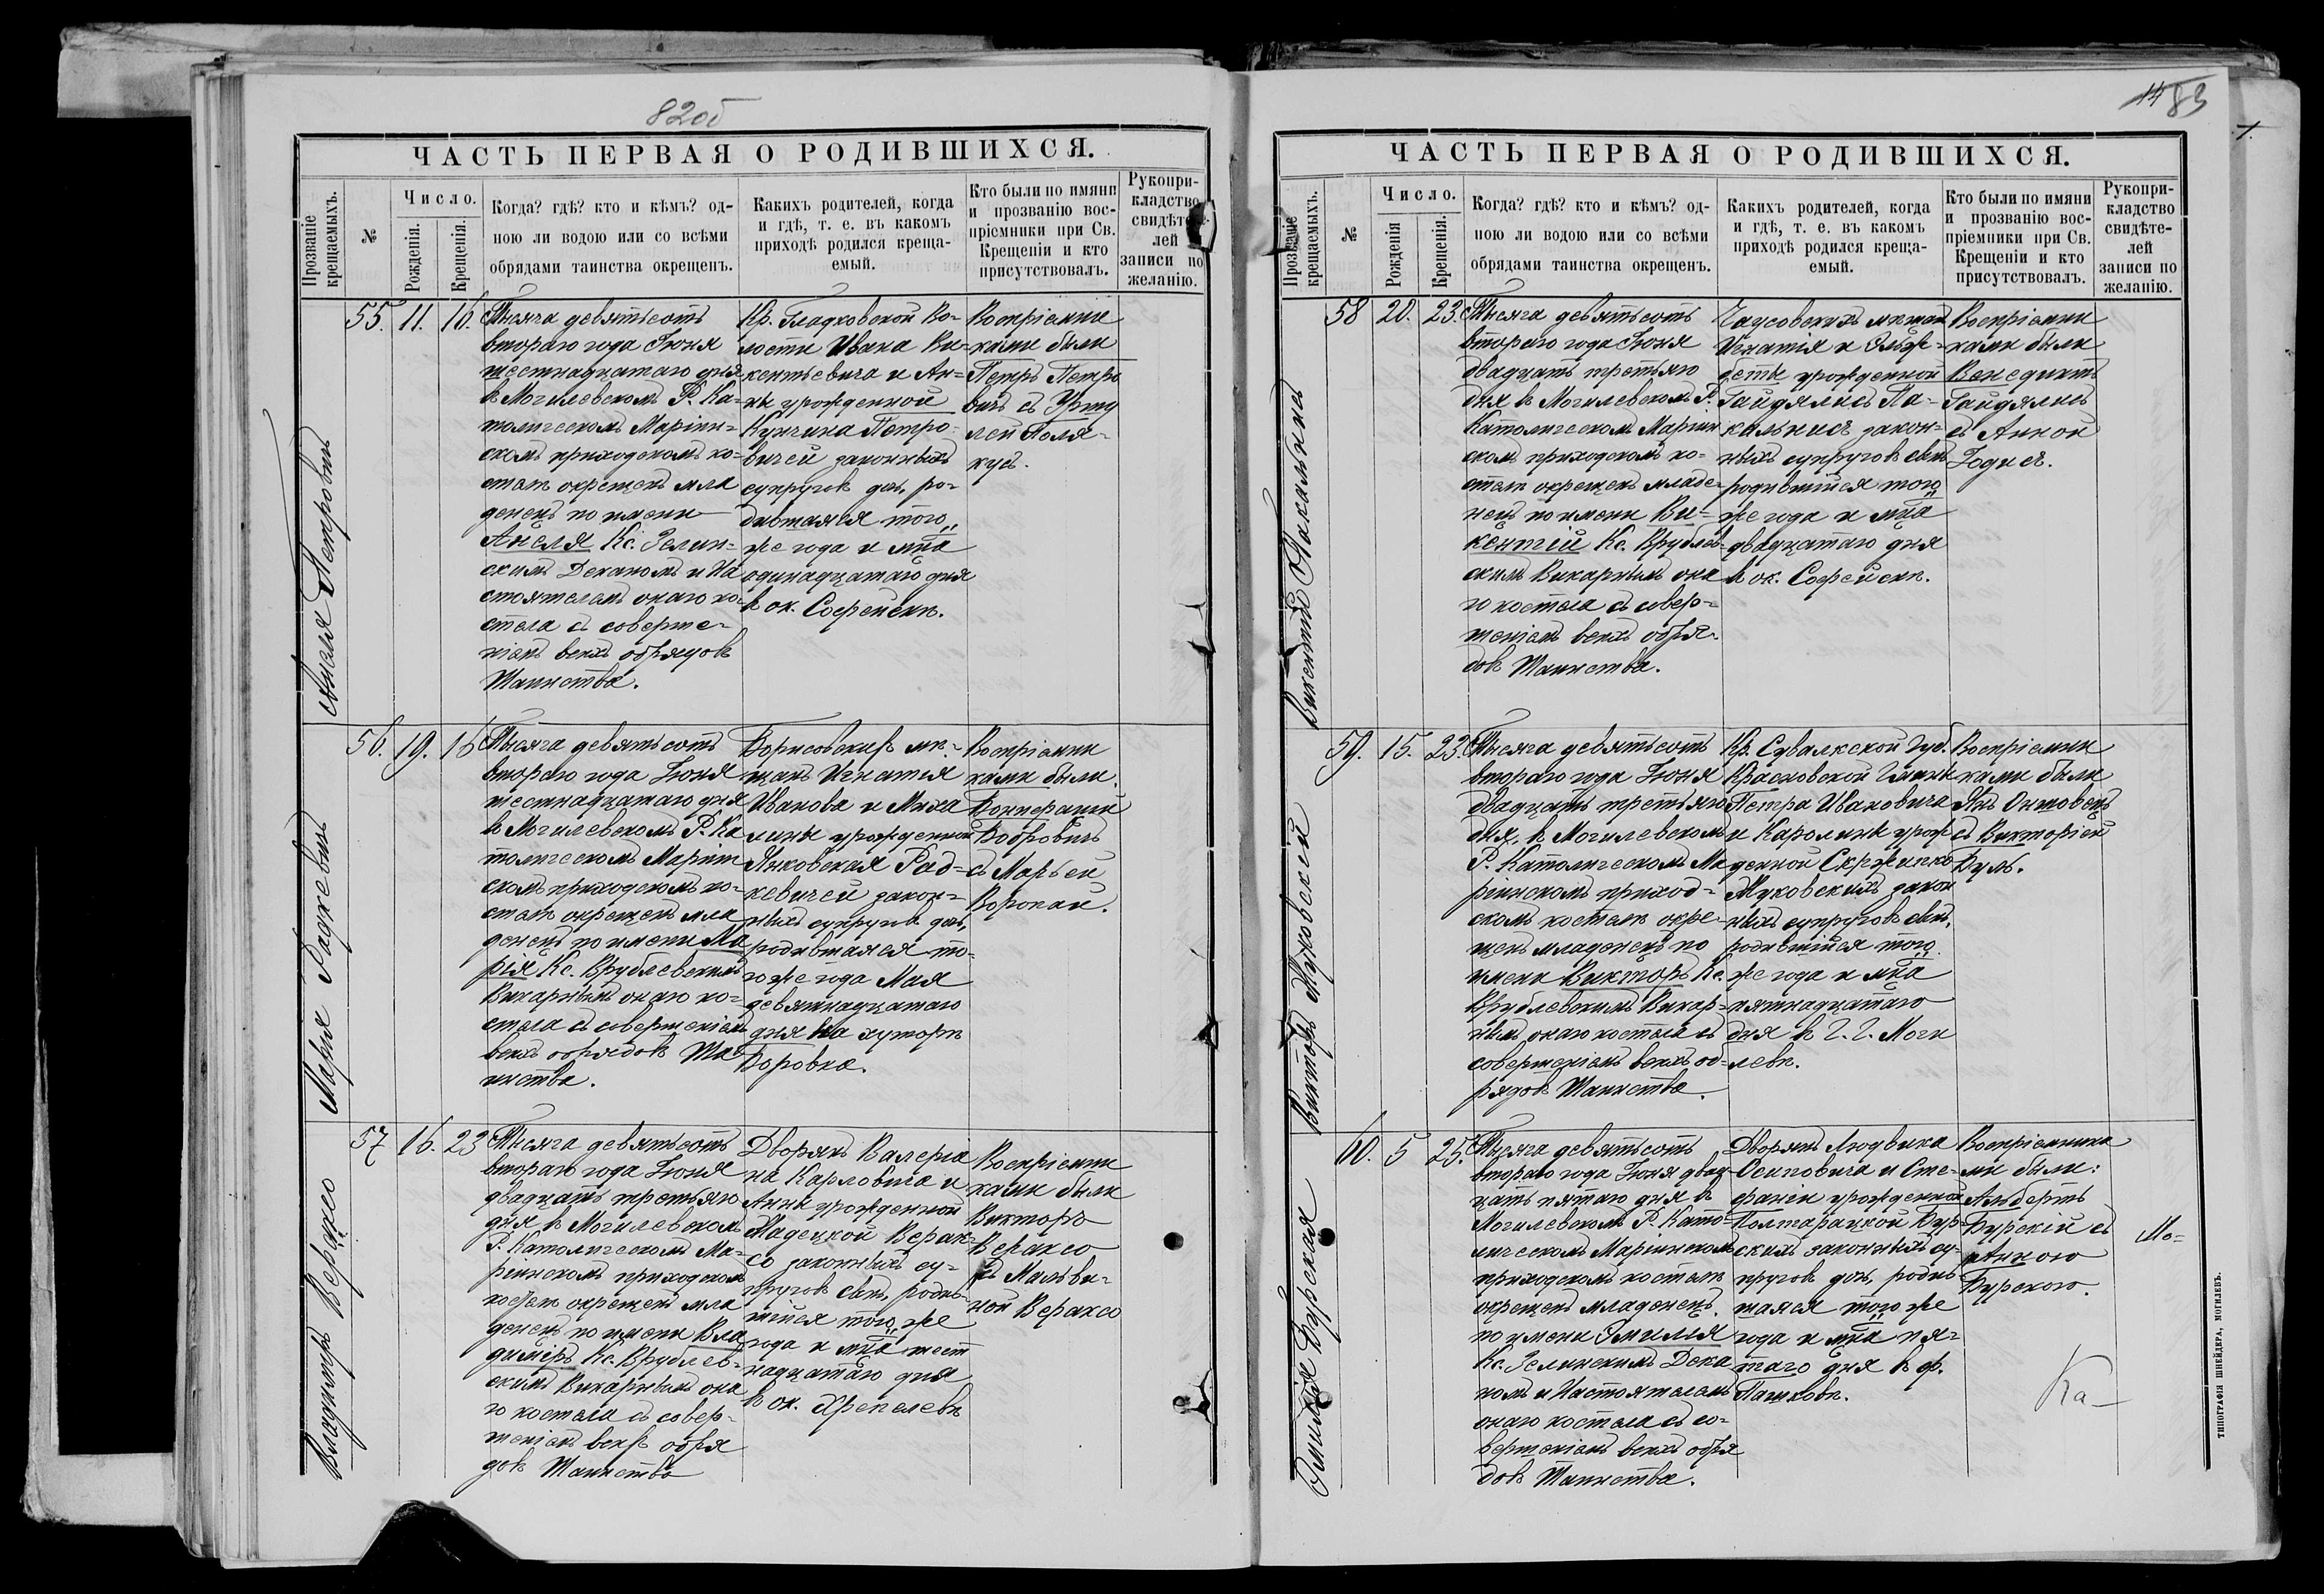 82об
ЧАСТЬ ПЕРВАЯ О РОДИВШИХСЯ.
Прозваніе крещаемыхъ.
№
Число.
Рожденія.
Крещенія.
Когда? гдѣ? кто и кѣмъ? од-
ною ли водою или со всѣми
обрядами таинства окрещенъ.
Какихъ родителей, когда
и гдѣ, т. е. въ какомъ
приходѣ родился креща-
емый.
Кто были по имяни
и прозванію вос-
пріемники при Св.
Крещеніи и кто
присутствовалъ.
Рукопри-
кладство
свидѣте-
лей
записи по
желанію.
Анеля Петровичъ
55. 11. 16.
Тысяча девятьсотъ
втораго года Іюня
шестнадцатаго дня
въ Могилевскомъ Р. Ка-
толическомъ Маріин-
скомъ приходскомъ ко-
стелѣ окрещенъ мла
денецъ по имени
Анеля Кс. Зелин-
скимъ Деканомъ и На
стоятелемъ онаго ко-
стела съ соверше-
ніемъ всѣхъ обрядовъ
Таинства.
Кр. Гладковской Во-
лости Ивана Ви-
кентьевича и Ан-
ны урожденной
Кунчина Петро-
вичей законныхъ
супруговъ дочь, ро-
дившаяся того
же года и мца
одинадцатаго дня
въ ок. Софейскѣ.
Воспріемни
ками были
Петръ Петро
вичъ съ
Марія Радкевичъ
56. 19. 16
Тысяча девятьсотъ
втораго года Іюня
шестнадцатаго дня
въ Могилевскомъ Р. Ка
толическомъ Маріин
скомъ приходскомъ ко-
стелѣ окрещенъ мла
денецъ по имени Ма
рія Кс. Врублевскимъ
Викарнымъ онаго ко-
стела съ совершеніемъ
всѣхъ обрядовъ Та-
инства.
Борисовскихъ мѣ-
щанъ Игнатія
Иванова и Миха
лины урожденной
Янковская Рад-
кевичей закон-
ныхъ супруговъ дочь,
родившаяся то-
го же года Мая
девятнадцатаго
дня на хуторѣ
Боровка.
Воспріемни
ками были
Бонифацій
Бобровичъ
съ Марьей
Воронай.
Владиміръ Вераксо
57 16. 23
Тысяча девятьсотъ
втораго года Іюня
двадцать третьяго
дня въ Могилевскомъ
Р. Католическомъ Ма-
ріинскомъ приходскомъ
костелѣ окрещенъ мла
денецъ по имени Вла
диміръ Кс. Врублев-
скимъ Викарнымъ она
го костела съ совер-
шеніемъ всѣхъ обря
довъ Таинства
Дворянъ Валеріа
на Карловича и
Анны урожденной
Жадецкой Верак-
со законныхъ су-
пруговъ сынъ, родив-
шійся того же
года и мца шест
надцатаго дня
въ ок. Хрепелевѣ
Воспріемни
ками были
Викторъ
Вераксо
съ Мальви-
ной Вераксо
83
ЧАСТЬ ПЕРВАЯ О РОДИВШИХСЯ.
Прозваніе крещаемыхъ.
№
Число.
Рожденія
Крещенія.
Когда? гдѣ? кто и кѣмъ? од-
ною ли водою или со всѣми
обрядами таинства окрещенъ.
Какихъ родителей, когда
и гдѣ, т. е. въ какомъ
приходѣ родился креща-
емый.
Кто были по имяни
и прозванію вос-
пріемники при Св.
Крещеніи и кто
присутствовалъ.
Рукопри-
кладство
свидѣте-
лей
записи по
желанію.
Викентій Пакальнисъ
58 20. 23.
Тысяча девятьсотъ
втораго года Іюня
двадцать третьяго
дня въ Могилевскомъ Р.
Католическомъ Маріин
скомъ приходскомъ ко-
стелѣ окрещенъ младе-
нецъ по имени Ви-
кентій Кс. Врублев-
скимъ Викарнымъ она
го костела съ совер-
шеніемъ всѣхъ обря-
довъ Таинства.
Чаусовскихъ мѣщан
Игнатія и Эльж-
беты урожденной
Гайдялисъ Па-
кальнисъ закон-
ныхъ супруговъ сынъ
родившійся того
же года и мца
двадцатаго дня
въ ок. Софейскѣ.
Воспріемни
ками были
Венедиктъ
Гайдялисъ
съ Анной
Годисъ.
Викторъ Жуковскій
59. 15. 23.
Тысяча девятьсотъ
втораго года Іюня
двадцать третьяго
дня, въ Могилевскомъ
Р. Католическомъ Ма
ріинскомъ приход-
скомъ костелѣ окре-
щенъ младенецъ по
имени Викторъ Кс.
Врублевскимъ Викар-
нымъ онаго костела съ
совершеніемъ всѣхъ об-
рядовъ Таинства.
Кр. Сувалкской Губ.
Красновской Гмины
Петра Ивановича
и Каролины урож
денной Скржипко
Жуковскихъ закон
ныхъ супруговъ сынъ,
родившійся того
же года и мца
пятнадцатаго
дня въ г. г. Моги
левѣ.
Воспріемни
ками были
Янъ Онтовецъ
съ Викторіей
Буль.
Эмилія Бурская
60. 5 25.
Тысяча девятьсотъ
втораго года Іюня двад-
цать пятаго дня въ
Могилевскомъ Р. Като-
лическомъ Маріинскомъ
приходскомъ костелѣ
окрещенъ младенецъ
по имени Эмилія
Кс. Зелинскимъ Дека
номъ и Настоятелемъ
онаго костела съ со-
вершеніемъ всѣхъ обря
довъ Таинства.
Дворянъ Людвика
Осиповича и Сте-
фаніи урожденной
Полтарацкой Бур-
скихъ законныхъ су-
пруговъ дочь, родив
шаяся того же
года и мца пя-
таго дня въ ф.
Пашковѣ.
Воспріемника
ми были:
Альбертъ
Бурскій съ
Анною
Бурскою.
Мо-
Ка-
ТИПОГРАФІЯ ШНЕЙДЕРА, МОГИЛЕВЪ.